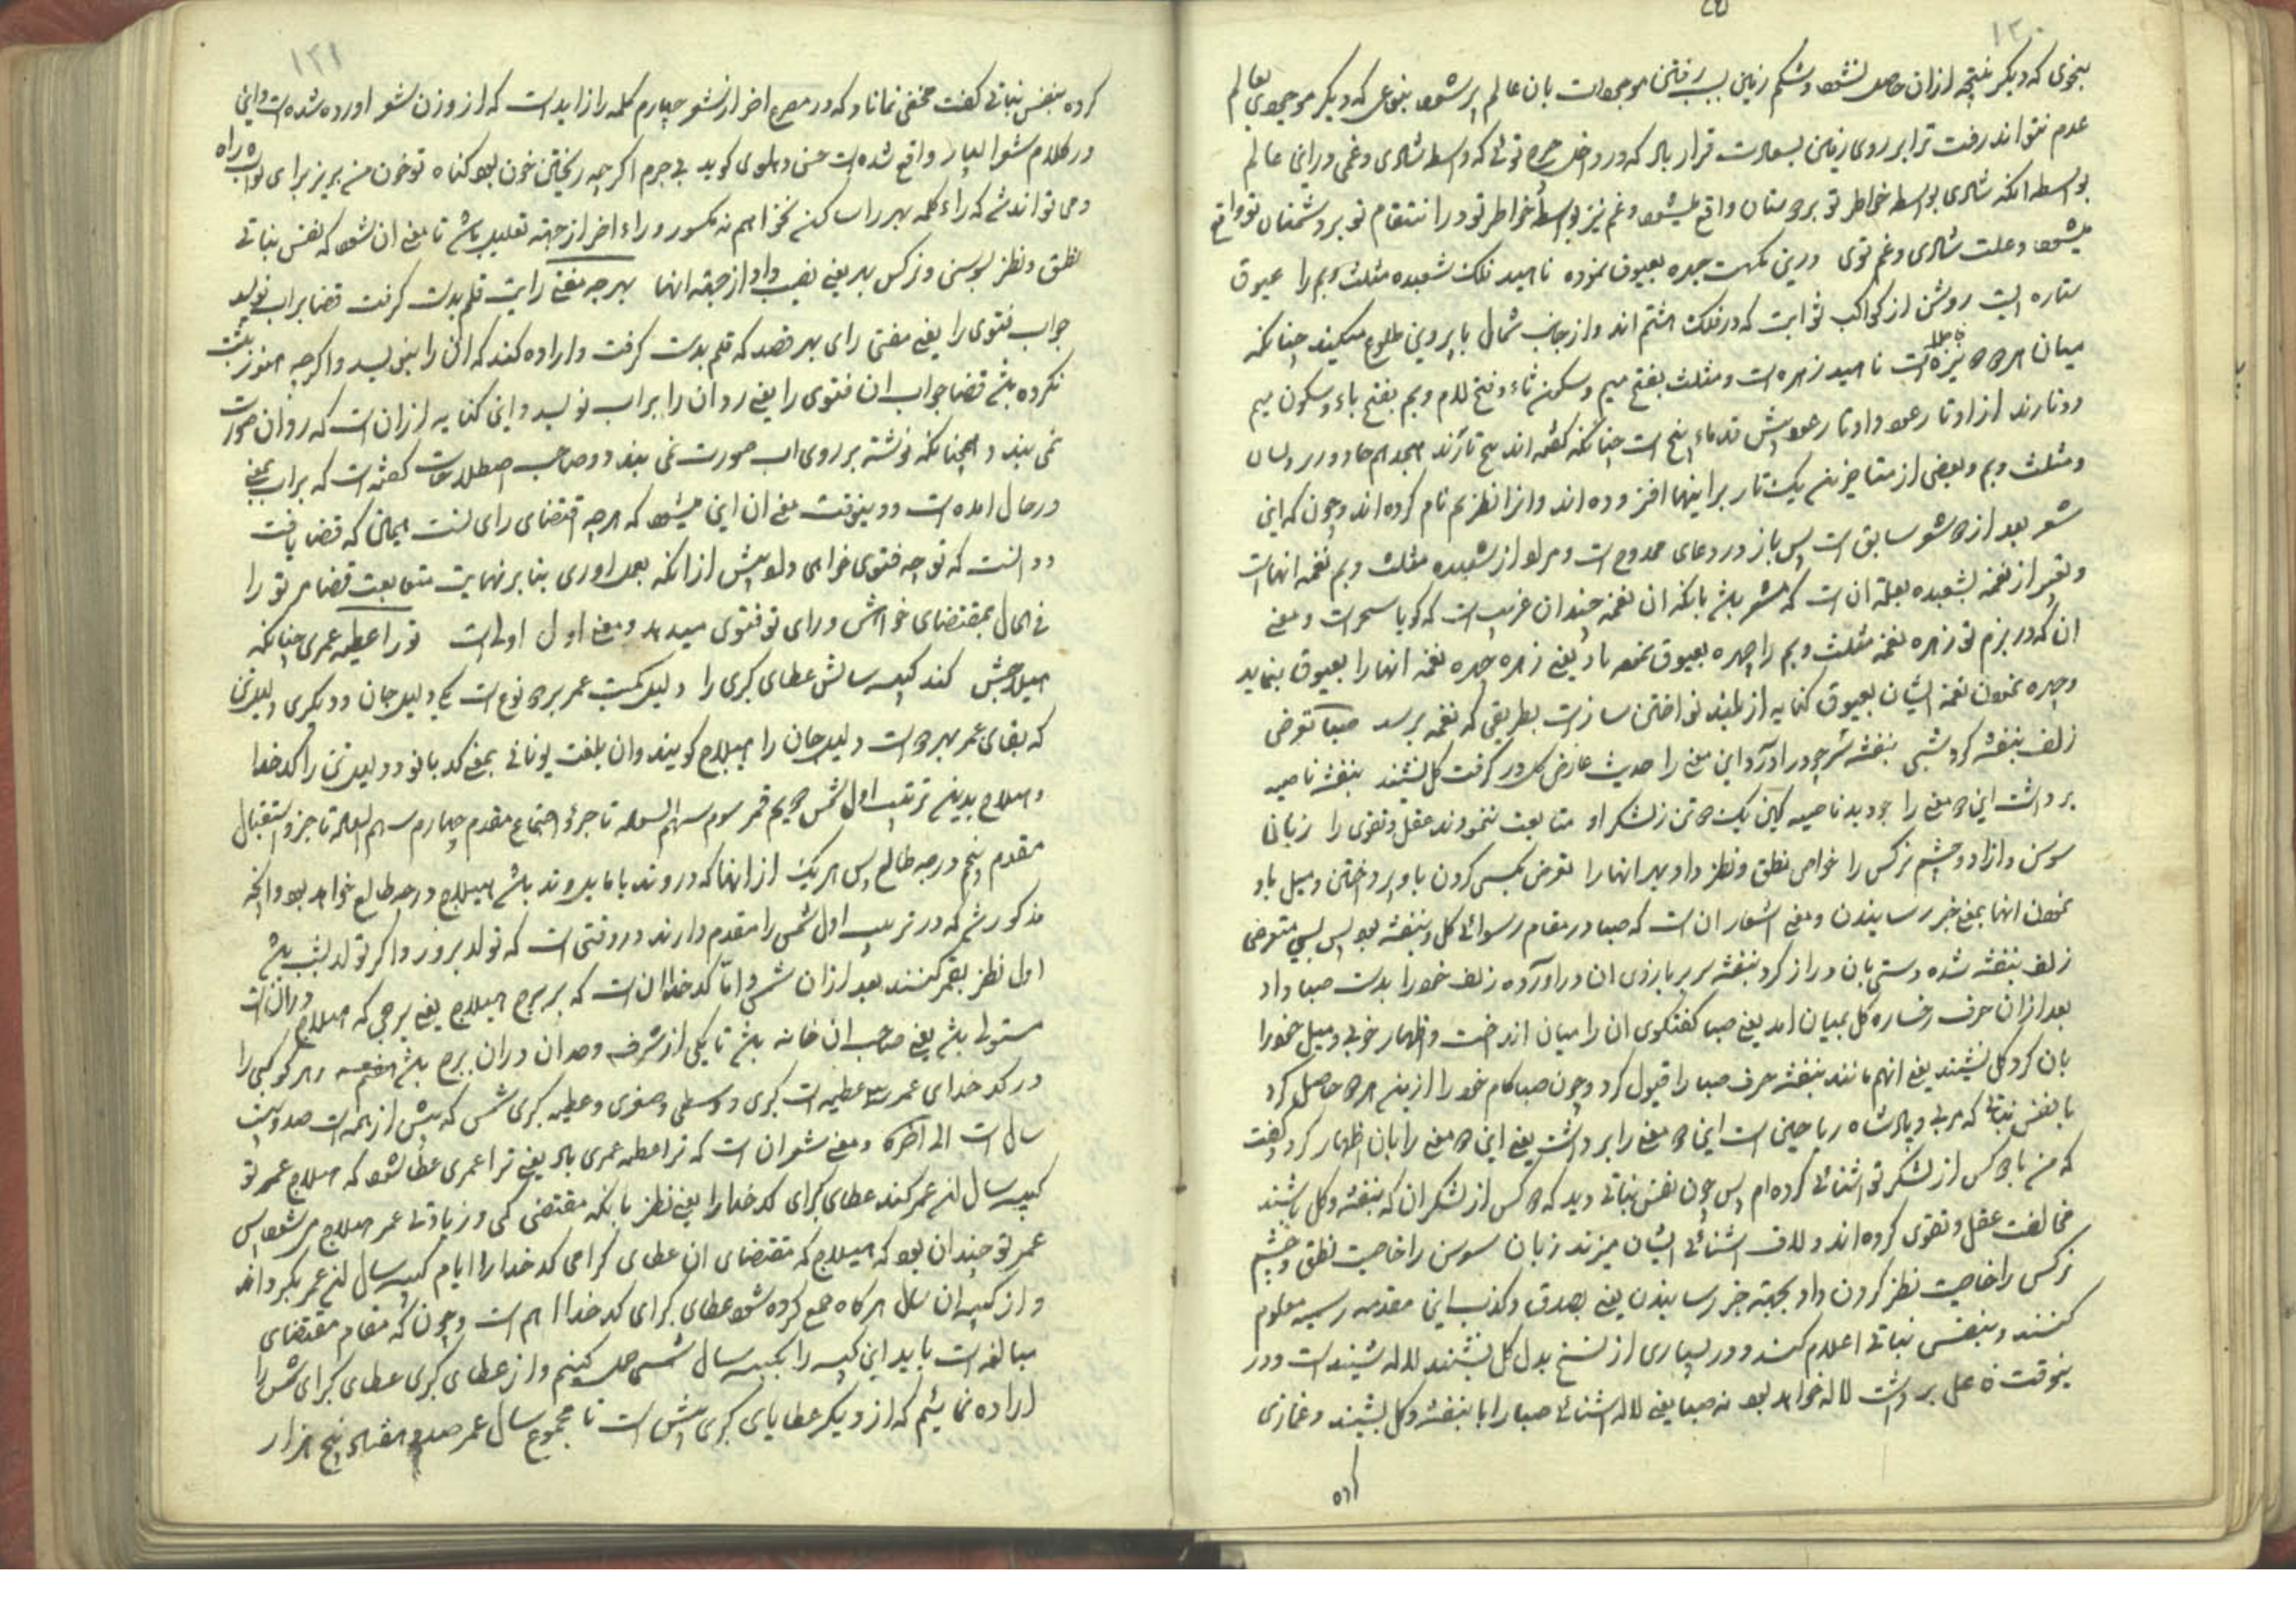 ۱۳۰
بنحوی که دیگر نتیجه ازان حاصل نشود و شکم زمین بسبب رفتن موجودات بان عالم پر شود بنوعی که دیگر موجودی بعالم
عدم نتواند رفت ترا بر روی زمین بسعادت قرار باد که در داخل توئی که واسطه شادی و غمی در این عالم
بواسطه انکه شادی بواسطه خواطر تو بر دوستان واقع میشود و غم نیز بواسطه خواطر تو در انتقام تو بر دشمنان تو واقع
میشود و علت شادی و غم توی در بزمگهت چهره بعیوق نموده ناهید فلک شعبده مثلث و بم را عیوق
ستاره ایست روشن از کواکب ثوابت که در فلک هشتم اند و از جانب شمال با پروین طلوع میکند چنانکه
میان هر دو نیزه است ناهید زهره است و مثلث بفتح میم و سکون ثاء و فتح لام و بم بفتح باء و سکون میم
دو تارند از اوتار عود و اوتار عود پیش قدماء پنج است چنانکه گفته اند پنج تارند
و مثلث و بم و بعضی از متاخرین یک تار براینها افزوده اند و انرا نام کرده اند و چون که این
شعر بعد از دو شعر سابق است پس باز در دعای ممدوح است و مراد از شعبده مثلث و بم نغمه انهاست
و تعبیر از نغمه بشعبده بعلت ان است که مشعر باشد بانکه ان نغمه چندان غریب است که گویا سحر است و معنی
ان که در بزم تو زهره نغمه مثلث و بم را چهره بعیوق نموده باد یعنی زهره چهره نغمه انها را بعیوق بنماید
و چهره نمودن نغمه ایشان بعیوق کنایه از بلند نواختن ساز است بطریقی که نغمه برسد صبا تعرض
زلف بنفشه کرد شبی بنفشه سر چو دراورد این معنی را حدیث عارض گل در گرفت گل بشنید بنفشه ناصیه
برداشت این دو معنی را چو دید نامیه کین یک دو تن ز لشکر او متابعت ننمودند عقل و تقوی را زبان
سوسن و ازاد و چشم نرگس را خواص نطق و نظر داد بهر انها را تعرض بمس کردن با و پرداختن و میل باو
نمودن انها بمعنی خبر رسانیدن و معنی اشعار ان است که صبا در مقام رسوائی گل و بنفشه بود پس شبی متعرض
زلف بنفشه شده دستی بان دراز کرد بنفشه سر بر بازوی ان دراورده زلف خود را بدست صبا داد
بعد ازان حرف رخساره گل بمیان امد یعنی صبا گفتگوی ان را میان انداخت و اظهار خوبی و میل خود را
بان کرد گل بشنید یعنی انهم مانند بنفشه حرف صبا را قبول کرد و چون صبا کام خود را ازین هر دو حاصل کرد
با نفس نباتی که مربی و پادشاه ریاحین است این دو معنی را برداشت یعنی این دو معنی را بان اظهار کرد و گفت
که من با دو کس از لشکر تو اشنائی کرده ام پس چون نفس نباتی دید که دو کس از لشکر ان که بنفشه و گل باشند
مخالفت عقل و تقوی کرده اند و لاف اشنائی ایشان میزند زبان سوسن را خاصیت نطق و چشم
نرگس را خاصیت نظر کردن داد بجهته خبر رسانیدن یعنی بصدق و کذب این مقدمه رسیده معلوم
کنند و بنفس نباتی اعلام کنند و در بسیاری از نسخ بدل گل بشنید لاله شنید است و در
ینوقت فاعل برداشت لاله خواهد بود نه صبا یعنی لاله اشنائی صبا را با بنفشه و گل بشنید و غمازی
کرده
۱۳۱
کرده بنفس نباتی گفت مخفی نماناد که در مصرع اخر از شعر چهارم کلمه را زاید است که از وزن شعر اورده شده است و این
در کلام شعرا بسیار واقع شده است حسن دهلوی گوید بی جرم اگر چه ریختن خون بود گناه تو خون من بریز برای ثواب را
و می تواند شد که راء کلمه بهر را ساکن نخوانیم نه مکسور و راء اخر از جهته تعلیل باشد تا معنی ان شود که نفس نباتی
نطق و نظر بسوسن و نرگس بهر یعنی نصیب داد از جهته انها بهر چه مفتی رایت قلم بدست گرفت قضا براب نوید
جواب فتوی را یعنی مفتی رای بهر قصد که قلم بدست گرفت و اراده کند که ان را بنویسد و اگر چه هنوز ثبت
نکرده باشد قضا جواب ان فتوی را یعنی روان را براب نویسد و این کنایه ازان است که روان صورت
می بندد همچنانکه نوشته بر روی اب صورت نمی بندد و صاحب اصطلاحات گفته است که براب بمعنی
در حال امده است و دینوقت معنی ان این میشود که هر چه اقتضای رای تست
دانست که تو چه فتوی خواهی داد پیش ازانکه بعمل اوری بنا بر نهایت متابعت قضا مر تو را
فی الحال بمقتضای خواهش و رای تو فتوی میدهد و معنی اول اولی است تو را عطیه عمری چنانکه
هیلاجش کند کبیسه سالش عطای کبری را دلیل کمیت عمر بر دو نوع است یکی دلیل جان و دیگری دلیل تن
که بقای عمر بهر دو است دلیل جان را هیلاج گویند و ان بلغت یونانی بمعنی کدبانو و دلیل تن را کدخدا
و هیلاج بدین ترتیب اول شمس دویم قمر سوم سهم السعاده تا جزو اجتماع مقدم چهارم سهم السعاده تا جزو استقبال
مقدم پنجم درجه طالع پس هر یک از انها که در وتد یا مایل وتد باشد هیلاج درجه طالع خواهد بود و انچه
مذکور شد که در ترتیب اول شمس را مقدم دارند در وقتی است که تولد بروز و اگر تولد بشب باشد
اول نظر بقمر کنند بعد ازان شمس و اما کدخدا ان است که بر برج هیلاج یعنی برجی که هیلاج دران است
مستولی باشد یعنی صاحب ان خانه باشد تا یکی از شرف و حد ان دران برج باشد و هر کوکبی را
در کدخدای عمر سه عطیه است کبری و وسطی و صغری و عطیه کبری شمس که بیش از همه است صد و بیست
سال است الی اخره و معنی شعر ان است که ترا عطیه عمری باد یعنی ترا عمری عطا شود که هیلاج عمر تو
کبیسه سال عمر کند عطای کبرای کدخدا را یعنی نظر بانکه مقتضی کمی و زیادتی عمر هیلاج میشود پس
عمر تو چندان بود که هیلاج که مقتضای ان عطای گرامی کدخدا را ایام کبیسه سال عمر بگرداند
و از کبیسه ان سال هرگاه جمع کرده شود عطای کبرای کدخدا هم است و چون که مقام مقتضای
مبالغه است باید این کبیسه را بکبیسه سال شمسی حمل کنیم و از عطای کبری عطای کبرای شمس را
اراده نمائیم که از دیگر عطایای کبری بیش است تا مجموع سال عمر صد و هفتاد پنج هزار